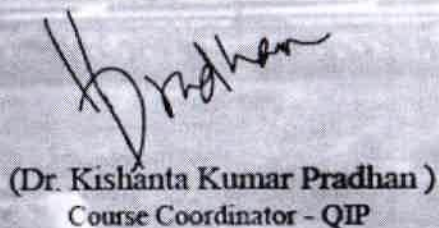 Pradhan
(Dr. Kishanta Kumar Pradhan )
Course Coordinator - QIP